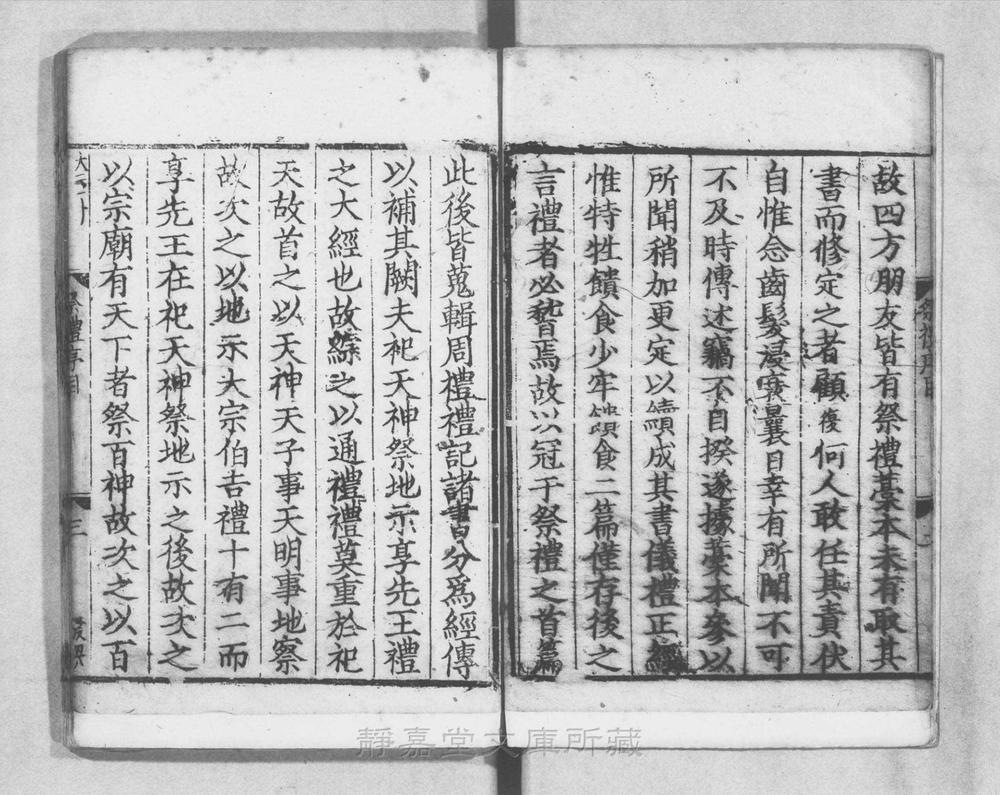 故四方朋友皆有祭禮藁本未有取其
書而修定之者顧復何人敢任其責伏
自惟念齒髮浸衰曩日幸有所聞不可
不及時傳述竊不自揆遂據藁本參以
所聞稍加更定以續成其書儀禮正經
惟特牲饋食少牢饋食二篇僅存後之
言禮者必稽焉故以冠于祭禮之首篇
此後皆蒐輯周禮禮記諸書分為經傳
以補其闕夫祀天神祭地示享先王禮
之大經也故綜之以通禮禮莫重於祀
天故首之以天神天子事天明事地察
故次之以地示大宗伯吉禮十有二而
享先王在祀天神祭地示之後故次之
以宗廟有天下者祭百神故次之以百
祭禮序目
三
靜嘉堂文庫所藏